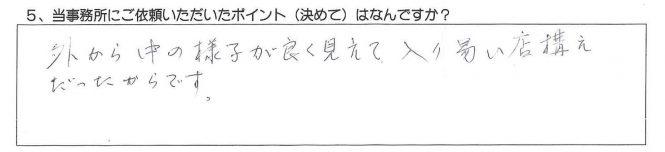 5、当事務所にご依頼いただいたポイント（決めて）はなんですか？
外から中の様子が良く見えて入り易い店構え
だったからです。